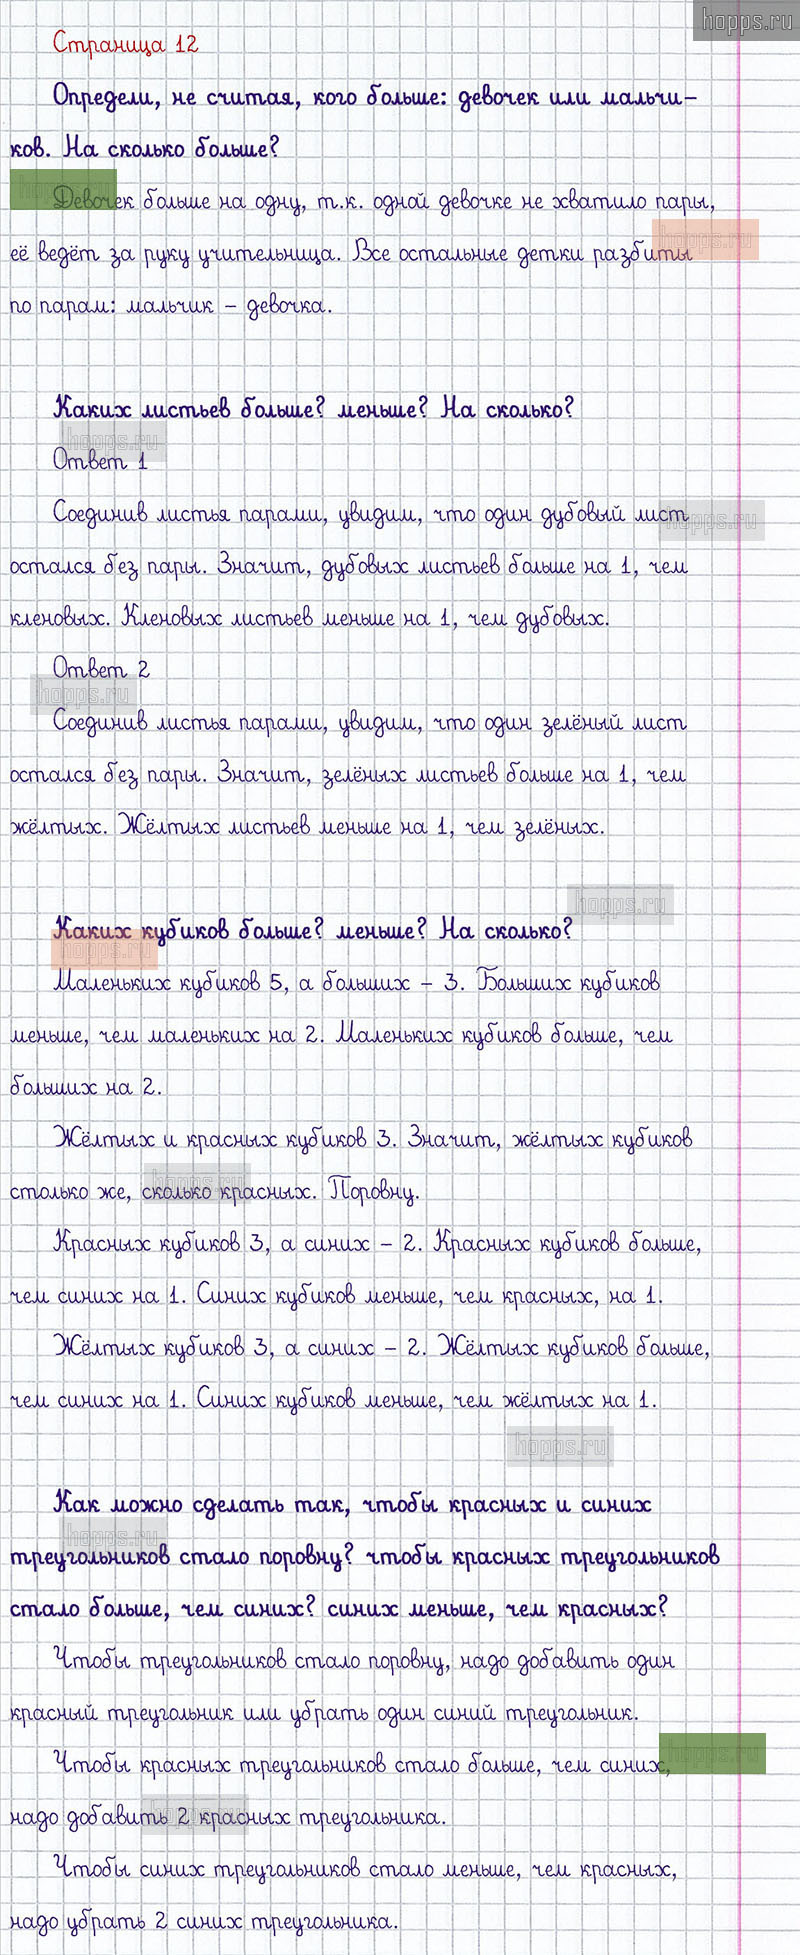 hopps.ru
Страница 12
Определи, не считая, кого больше: девочек или мальчи-
ков. На сколько больше?
hopps.ru
Девочек больше на одну, т.к. одной девочке не хватило пары,
hopps.ru
её ведёт за руку учительница. Все остальные детки разбиты
по парам: мальчик – девочка.
Каких листьев больше? меньше? На сколько?
hopps.ru
Ответ 1
Соединив листья парами, увидим, что один дубовый лист
hopps.ru
остался без пары. Значит, дубовых листьев больше на 1, чем
кленовых. Кленовых листьев меньше на 1, чем дубовых.
Ответ 2
hopps.ru
Соединив листья парами, увидим, что один зелёный лист
остался без пары. Значит, зелёных листьев больше на 1, чем
жёлтых. Жёлтых листьев меньше на 1, чем зелёных.
hopps.ru
Каких кубиков больше? меньше? На сколько?
hopps.ru
Маленьких кубиков 5, а больших – 3. Больших кубиков
меньше, чем маленьких на 2. Маленьких кубиков больше, чем
больших на 2.
Жёлтых и красных кубиков 3. Значит, жёлтых кубиков
hopps.ru
столько же, сколько красных. Поровну.
Красных кубиков 3, а синих – 2. Красных кубиков больше,
чем синих на 1. Синих кубиков меньше, чем красных, на 1.
Жёлтых кубиков 3, а синих – 2. Жёлтых кубиков больше,
чем синих на 1. Синих кубиков меньше, чем жёлтых на 1.
hopps.ru
Как можно сделать так, чтобы красных и синих
hopps.ru
треугольников стало поровну? чтобы красных треугольников
стало больше, чем синих? синих меньше, чем красных?
Чтобы треугольников стало поровну, надо добавить один
красный треугольник или убрать один синий треугольник.
hopps.ru
Чтобы красных треугольников стало больше, чем синих,
hopps.ru
надо добавить 2 красных треугольника.
Чтобы синих треугольников стало меньше, чем красных,
надо убрать 2 синих треугольника.